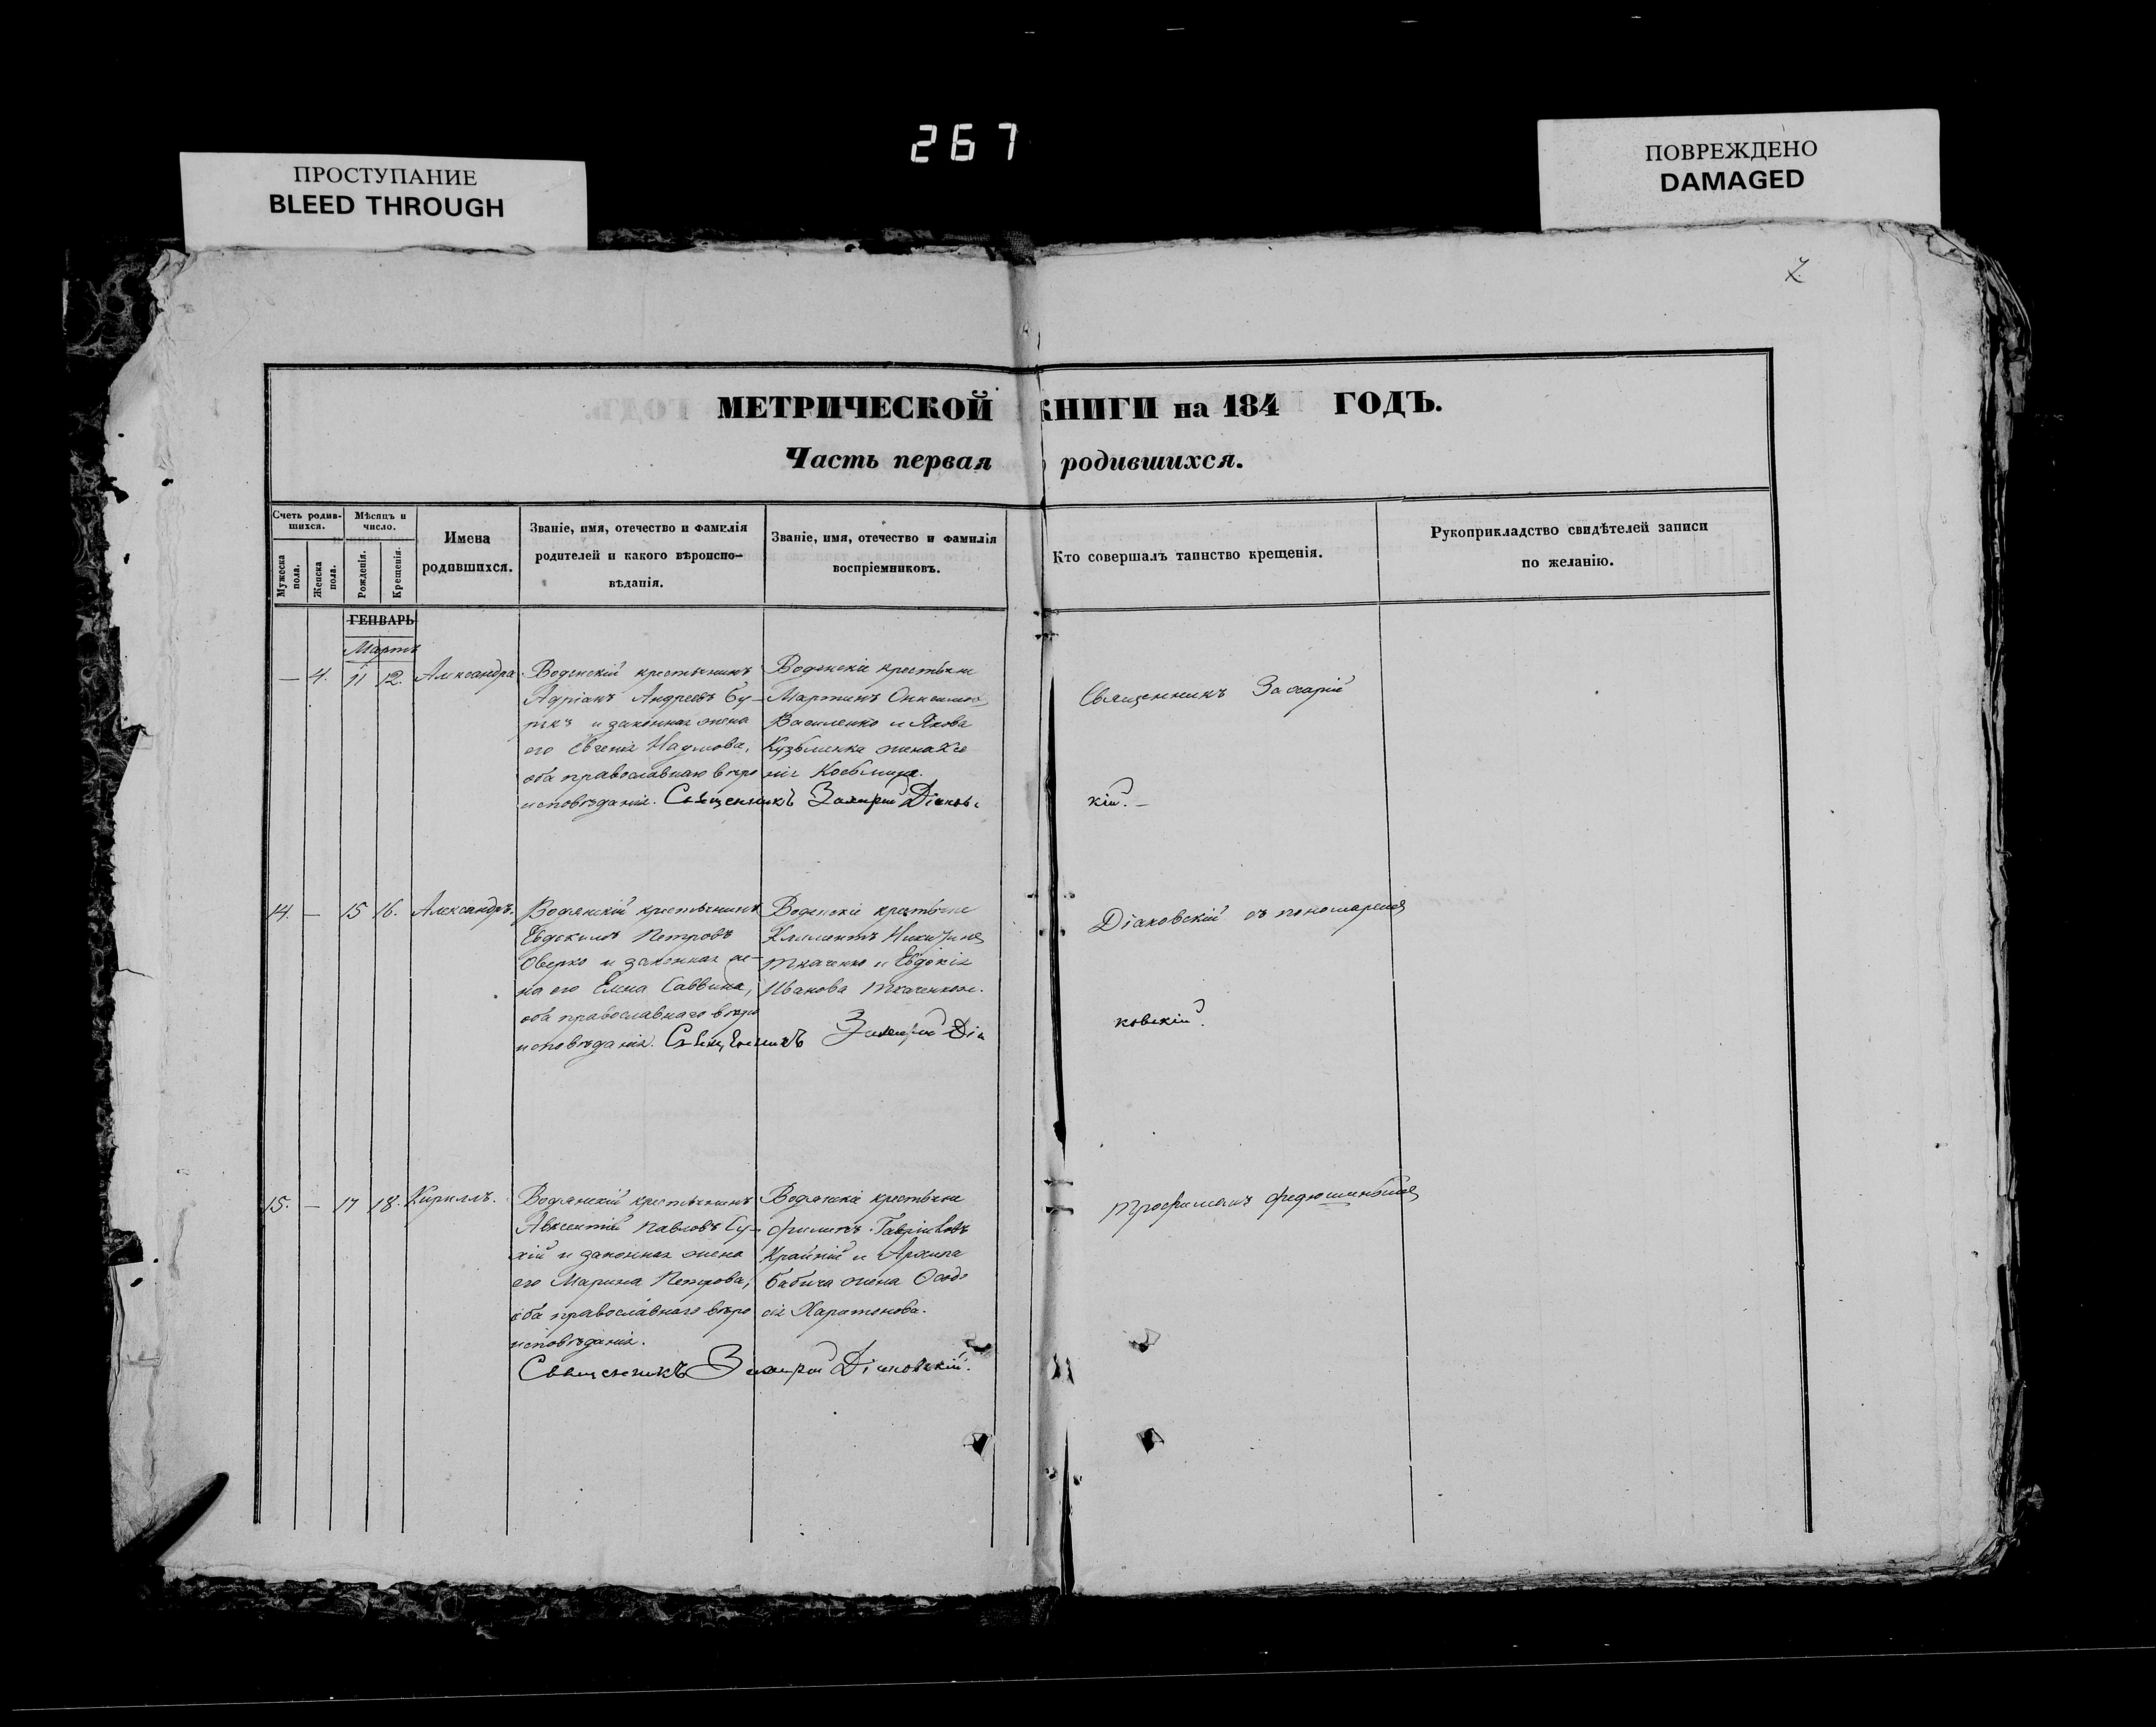 267
ПРОСТУПАНИЕ
BLEED THROUGH
ПОВРЕЖДЕНО
DAMAGED
МЕТРИЧЕСКОЙ КНИГИ на 184 ГОДЪ.
Часть первая родившихся.
Счетъ родив-
шихся.
Мужеска
пола.
Женска
пола.
Мѣсяцъ и
число.
Рожденія.
Крещенія.
Имена
родившихся.
Званіе, имя, отечество и фамилія
родителей и какого вѣроиспо-
вѣданія.
Званіе, имя, отечество и фамилія
воспріемниковъ.
Кто совершалъ таинство крещенія.
Рукоприкладство свидѣтелей записи
по желанію.
ГЕНВАРЬ
Мартъ
— 4. 11 12. Александра
Водянскій крестьянинъ
Адріанъ Андреевъ Су-
и законная жена
его Евгенія Наумова,
оба православнаго вѣро
исповѣданія. Священникъ Захарій Діаковс
Водянскіе крестьяне
Мартинъ
Василенко и Якова
Кузьменка жена Ксе
нія Косьмина.
Священникъ Захарій
кій. —
14. — 15 16. Александръ.
Водянскій крестьянинъ
Евдокимъ Петровъ
Оверко и законная же-
на его Елена Саввина,
оба православнаго вѣро
исповѣданія. Священникъ Захарій Діа
Водянскіе крестьяне
Климентъ
Ткаченко и Евдокія
Иванова Ткаченкова.
Діаковскій съ пономаремъ
ковскій.
15. — 17 18. Кириллъ.
Водянскій крестьянинъ
Авксентій Павловъ Су-
хій и законная жена
его Марина Петрова,
оба православнаго вѣро
исповѣданія.
Священникъ Захарій Діаковскій.
Водянскіе крестьяне
Филиппъ Гавріиловъ
Крайній и Архипа
Бабича жена Ѳеодо
сія Харитонова.
Трофимомъ